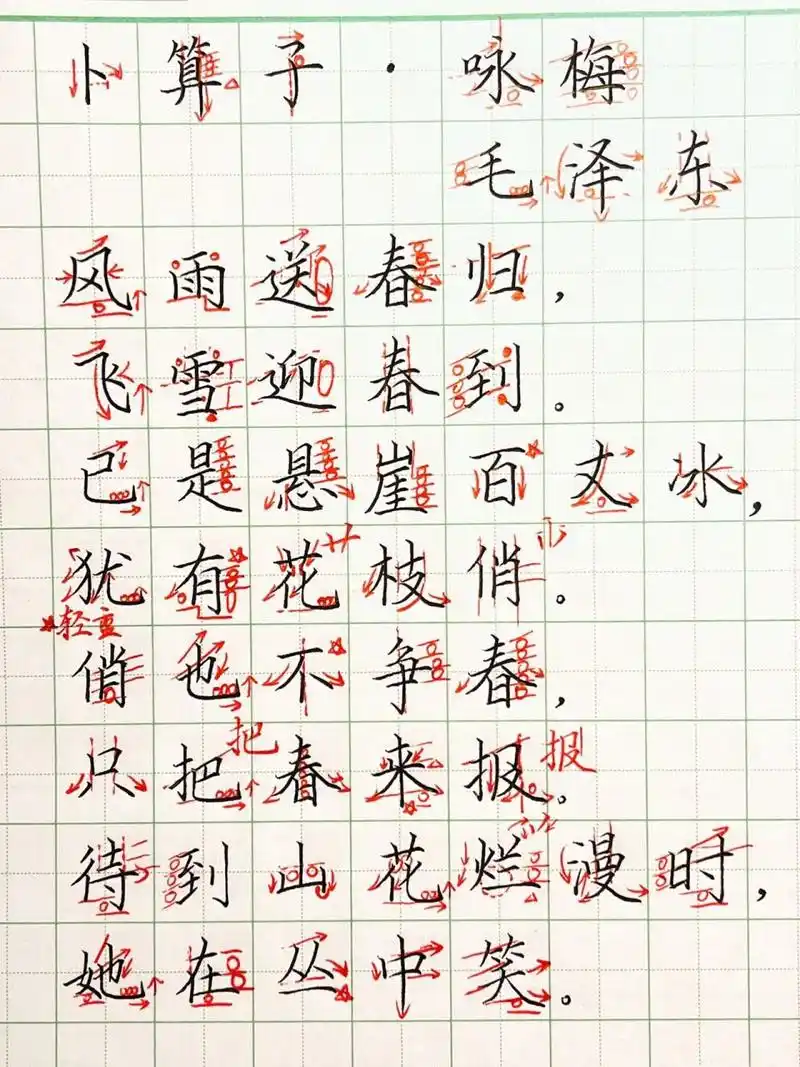 卜算子·咏梅
毛泽东
风雨送春归，
飞雪迎春到。
已是悬崖百丈冰，
犹有花枝俏。
轻重
俏也不争春，
把
只把春来报。
报
待到山花烂漫时，
她在丛中笑。